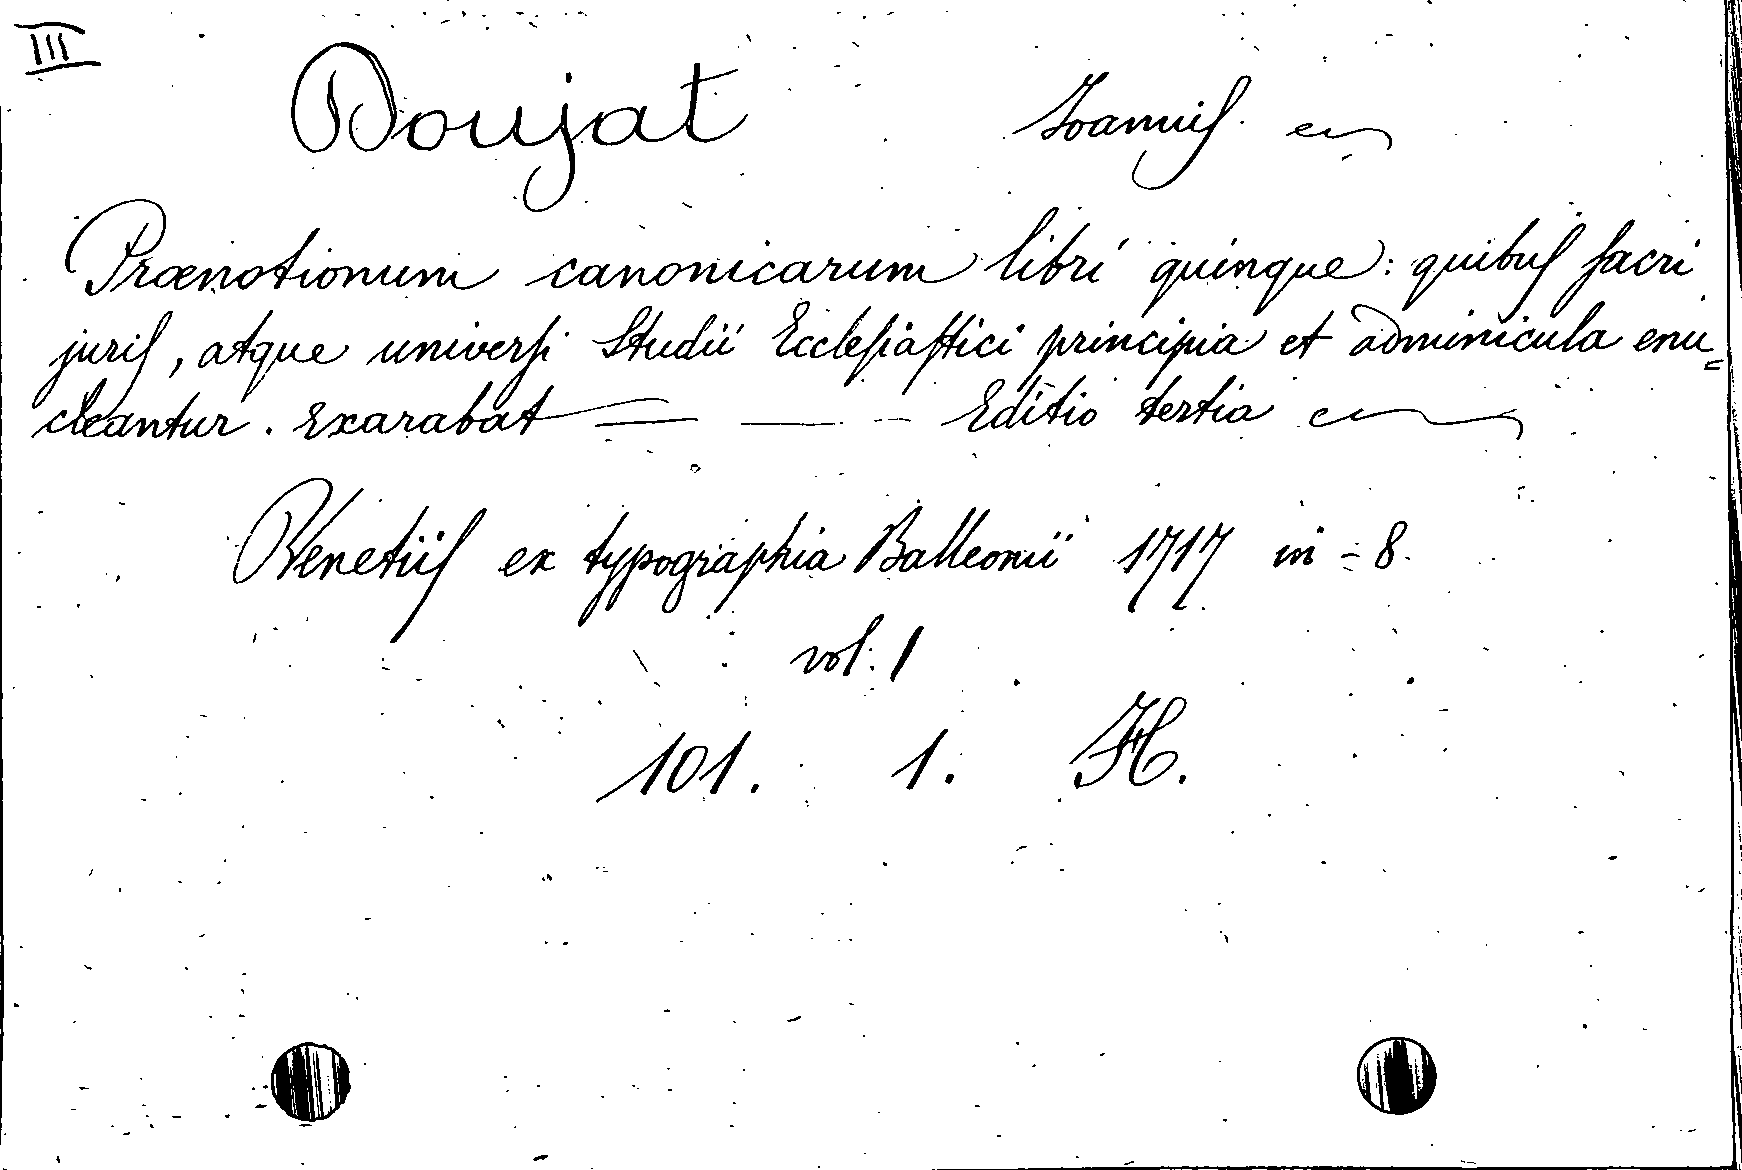 III
Doujat Joannis.
Prænotionum canonicarum libri quinque: quibus sacri
juris, atque universi Studii Ecclesiastici principia et adminicula enu=
cleantur. Exarabat — — - Editio tertia
Venetiis ex typographia Balleonii 1717 in-8.
vol. 1
101. 1. H.